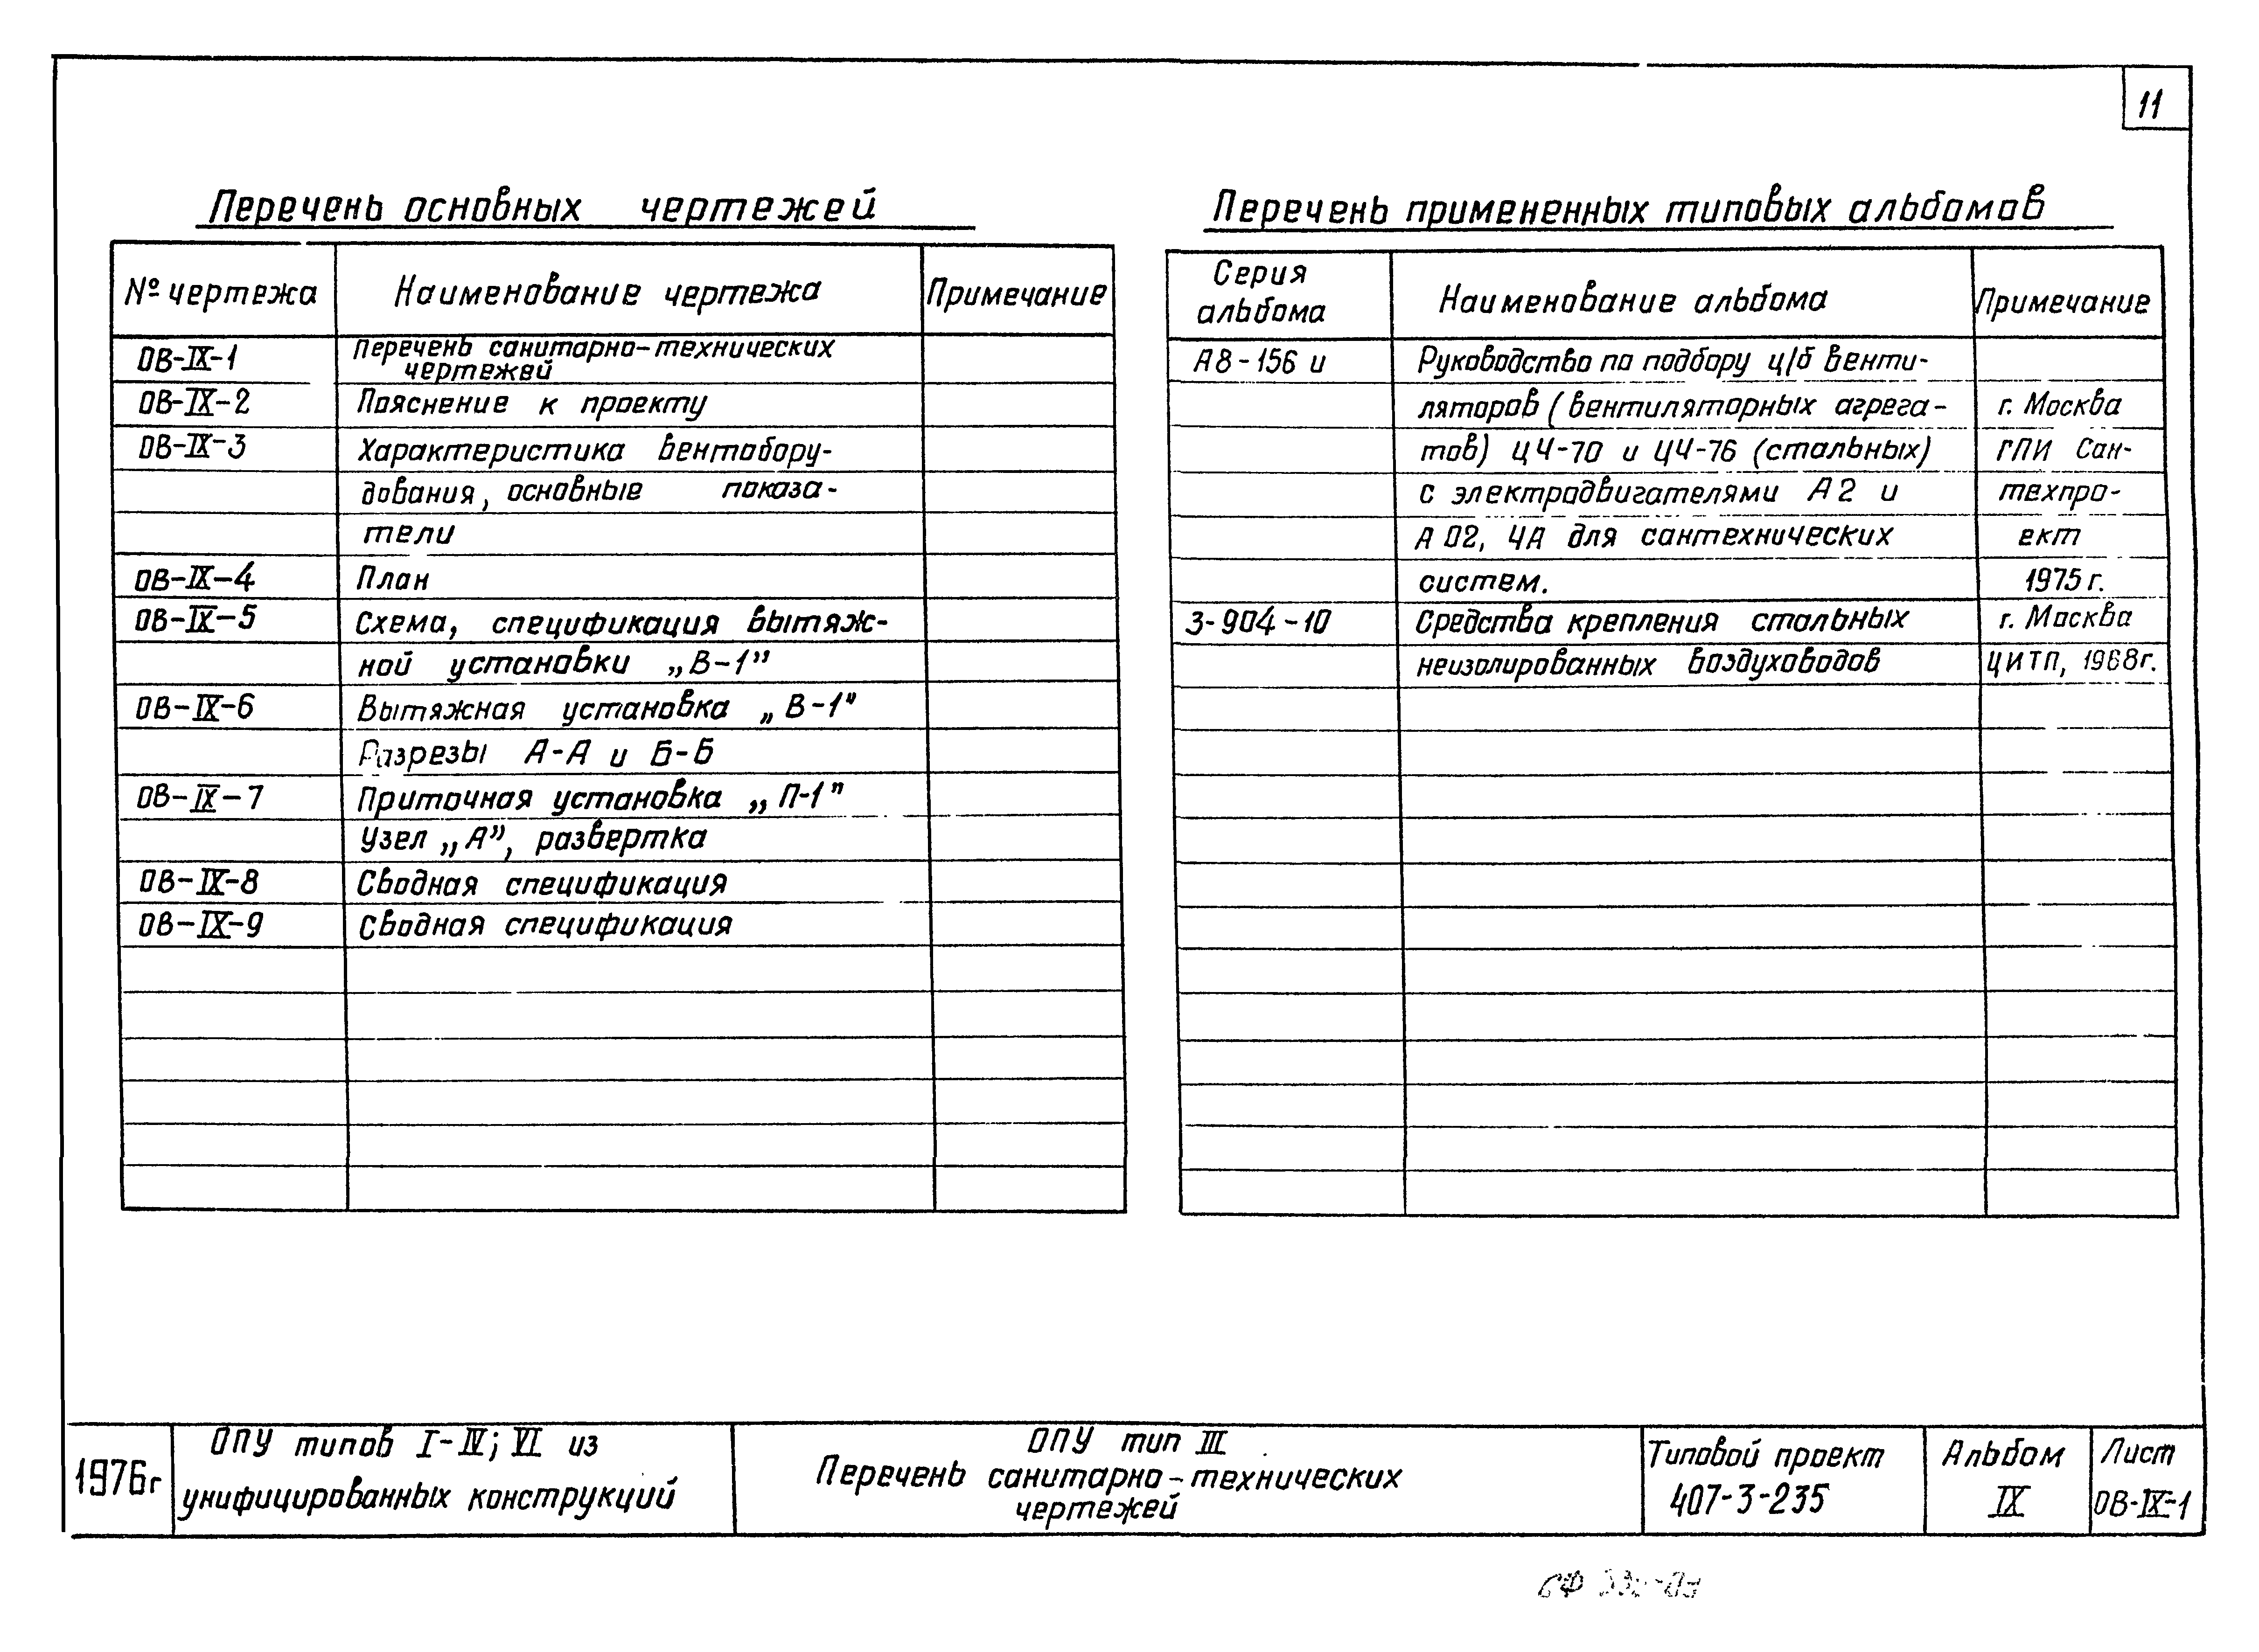 11
Перечень основных чертежей
№ чертежа Наименование чертежа Примечание
ОВ-IX-1 Перечень санитарно-технических
чертежей
ОВ-IX-2 Пояснение к проекту
ОВ-IX-3 Характеристика вентобору-
дования, основные показа-
тели
ОВ-IX-4 План
ОВ-IX-5 Схема, спецификация вытяж-
ной установки „В-1”
ОВ-IX-6 Вытяжная установка „В-1”
Разрезы А-А и Б-Б
ОВ-IX-7 Приточная установка „П-1”
Узел „А”, развертка
ОВ-IX-8 Сводная спецификация
ОВ-IX-9 Сводная спецификация
Перечень примененных типовых альбомов
Серия
альбома Наименование альбома Примечание
А8-156 и Руководство по подбору ц/б венти-
ляторов (вентиляторных агрега- г. Москва
тов) Ц4-70 и Ц4-76 (стальных) ГПИ Сан-
с электродвигателями А2 и техпро-
А02, 4А для сантехнических ект
систем. 1975 г.
3-904-10 Средства крепления стальных г. Москва
неизолированных воздуховодов ЦИТП, 1968г.
1976г
ОПУ типов I-IV; VI из
унифицированных конструкций
ОПУ тип III
Перечень санитарно-технических
чертежей
Типовой проект
407-3-235
Альбом
IX
Лист
ОВ-IX-1